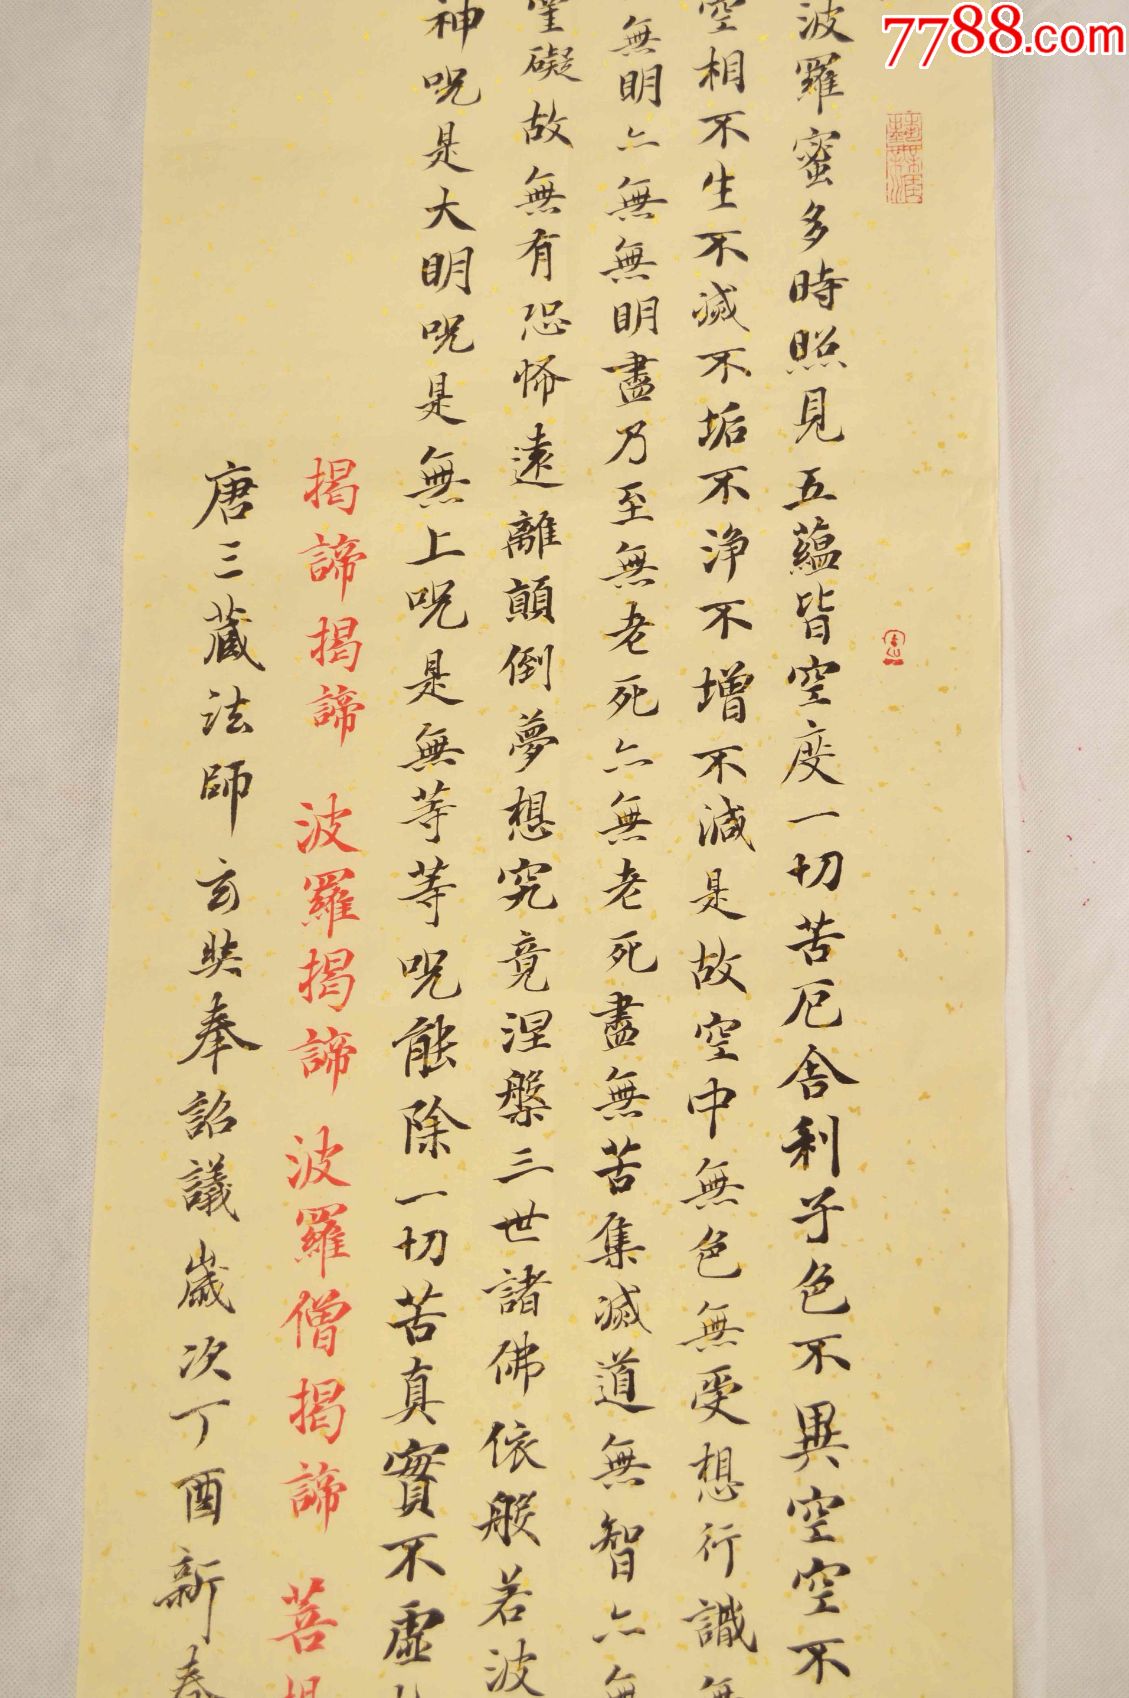 7788.com
波羅蜜多時照見五蘊皆空度一切苦厄舍利子色不異空空不
空相不生不滅不垢不淨不增不減是故空中無色無受想行識無
無明亦無無明盡乃至無老死亦無老死盡無苦集滅道無智亦無
罣礙故無有恐怖遠離顛倒夢想究竟涅槃三世諸佛依般若波
神咒是大明咒是無上咒是無等等咒能除一切苦真實不虛
揭諦揭諦 波羅揭諦 波羅僧揭諦 菩提
唐三藏法師玄奘奉詔議歲次丁酉新春